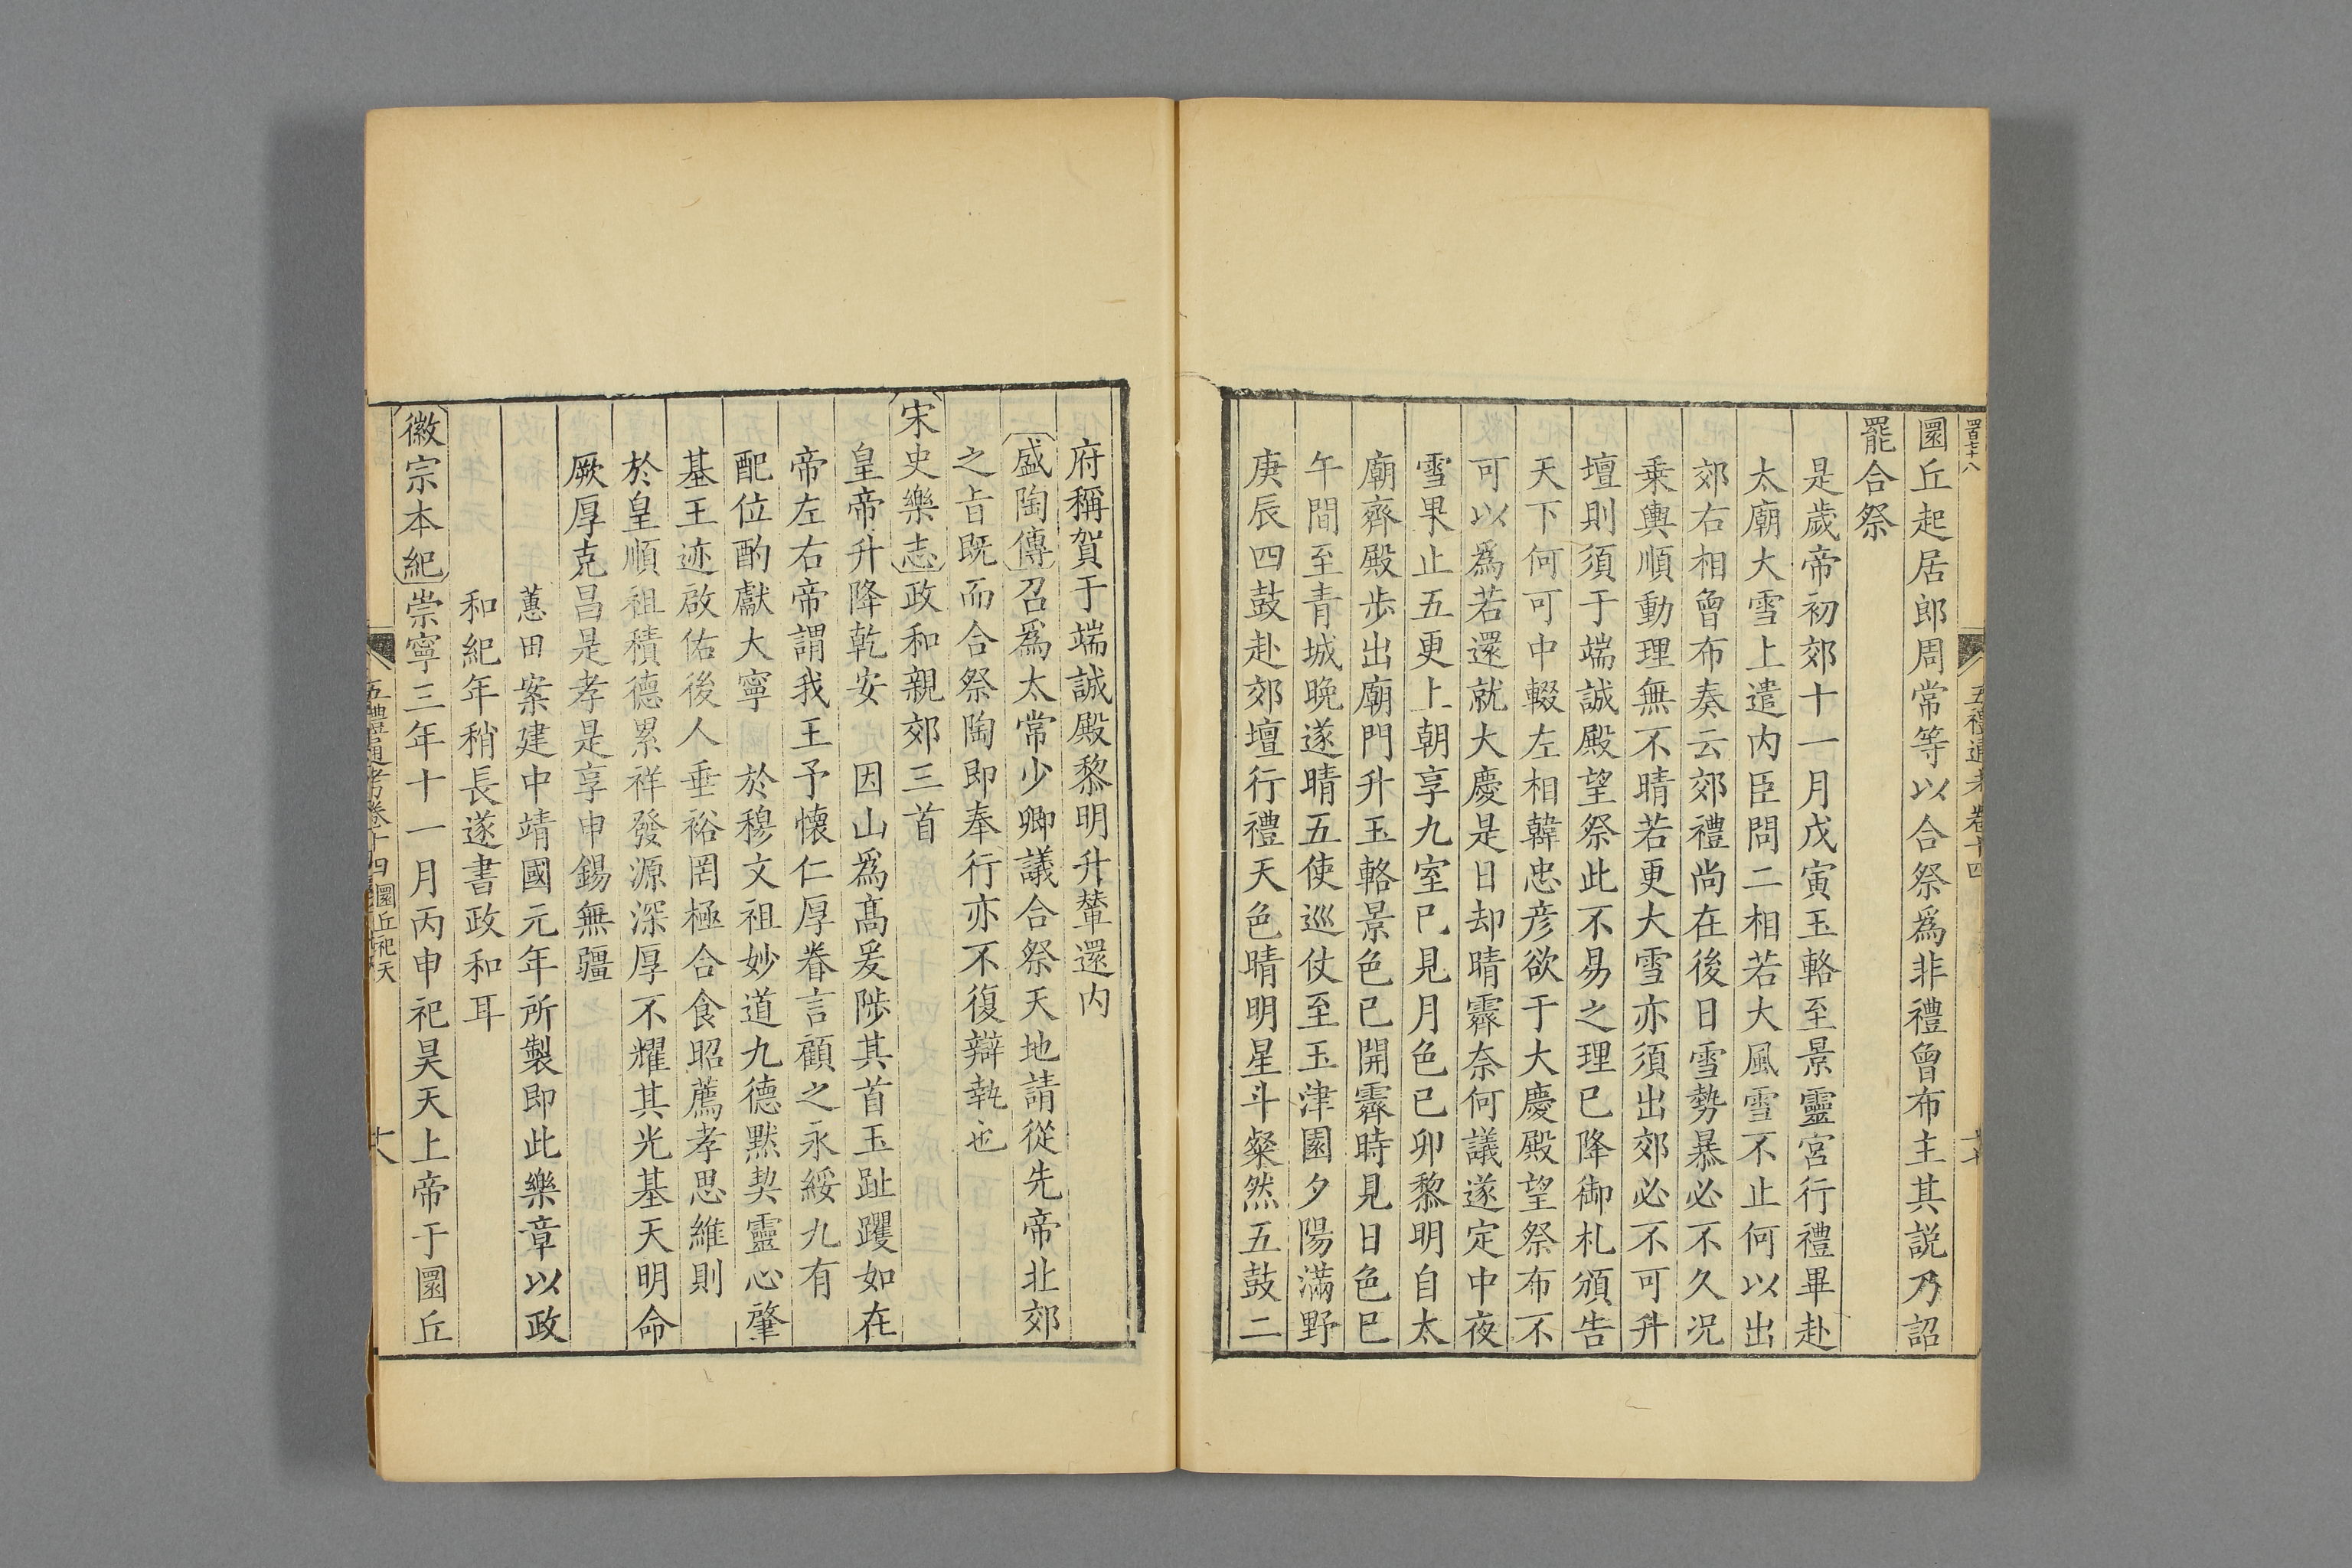 圜丘起居郎周常等以合祭爲非禮曾布主其説乃詔
罷合祭
是歲帝初郊十一月戊寅玉輅至景靈宫行禮畢赴
太廟大雪上遣内臣問二相若大風雪不止何以出
郊右相曾布奏云郊禮尚在後日雪勢暴必不久況
乗輿順動理無不晴若更大雪亦須出郊必不可升
壇則須于端誠殿望祭此不易之理已降御札頒告
天下何可中輟左相韓忠彦欲于大慶殿望祭布不
可以爲若還就大慶是日却晴霽奈何議遂定中夜
雪果止五更上朝享九室已見月色已卯黎明自太
廟齊殿步出廟門升玉輅景色已開霽時見日色巳
午間至青城晚遂晴五使巡仗至玉津園夕陽滿野
庚辰四鼓赴郊壇行禮天色晴明星斗粲然五鼓二
府稱賀于端誠殿黎明升輦還内
盛陶傳召爲太常少卿議合祭天地請從先帝北郊
之旨既而合祭陶即奉行亦不復辯執也
宋史樂志政和親郊三首
皇帝升降乾安 因山爲髙爰陟其首玉趾躩如在
帝左右帝謂我王予懐仁厚眷言顧之永綏九有
配位酌獻大寧 於穆文祖妙道九德黙契靈心肇
基王迹啟佑後人垂裕罔極合食昭薦孝思維則
於皇順祖積德累祥發源深厚不耀其光基天明命
厥厚克昌是孝是享申錫無疆
蕙田案建中靖國元年所製即此樂章以政
和紀年稍長遂書政和耳
徽宗本紀崇寧三年十一月丙申祀昊天上帝于圜丘
五禮通考卷十四 圜丘祀天